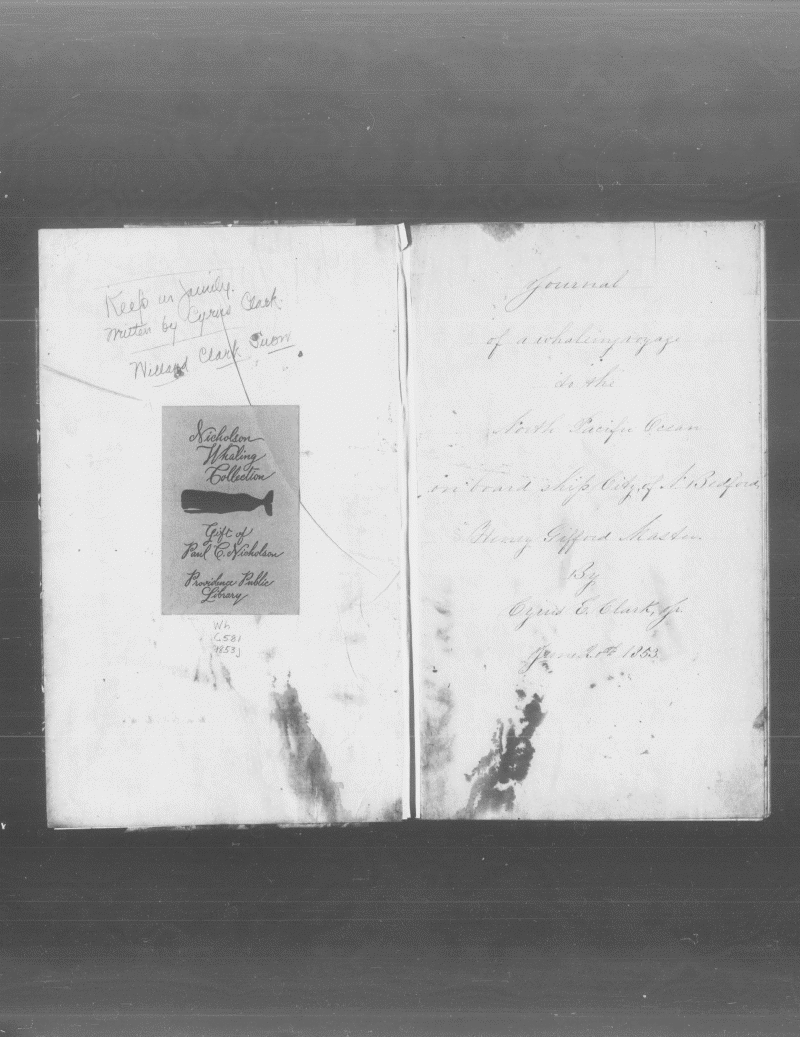 Keep in family.
Written by Cyrus Clark.
Willard Clark Snow
Nicholson
Whaling
Collection
Gift of
Paul C. Nicholson
Providence Public
Library
Wh
C581
1853j
Journal
of a whaling voyage
in the
North Pacific Ocean
on board ship City of N. Bedford
Henry Gifford Master
By
Cyrus E. Clark, Jr.
June 20th 1853